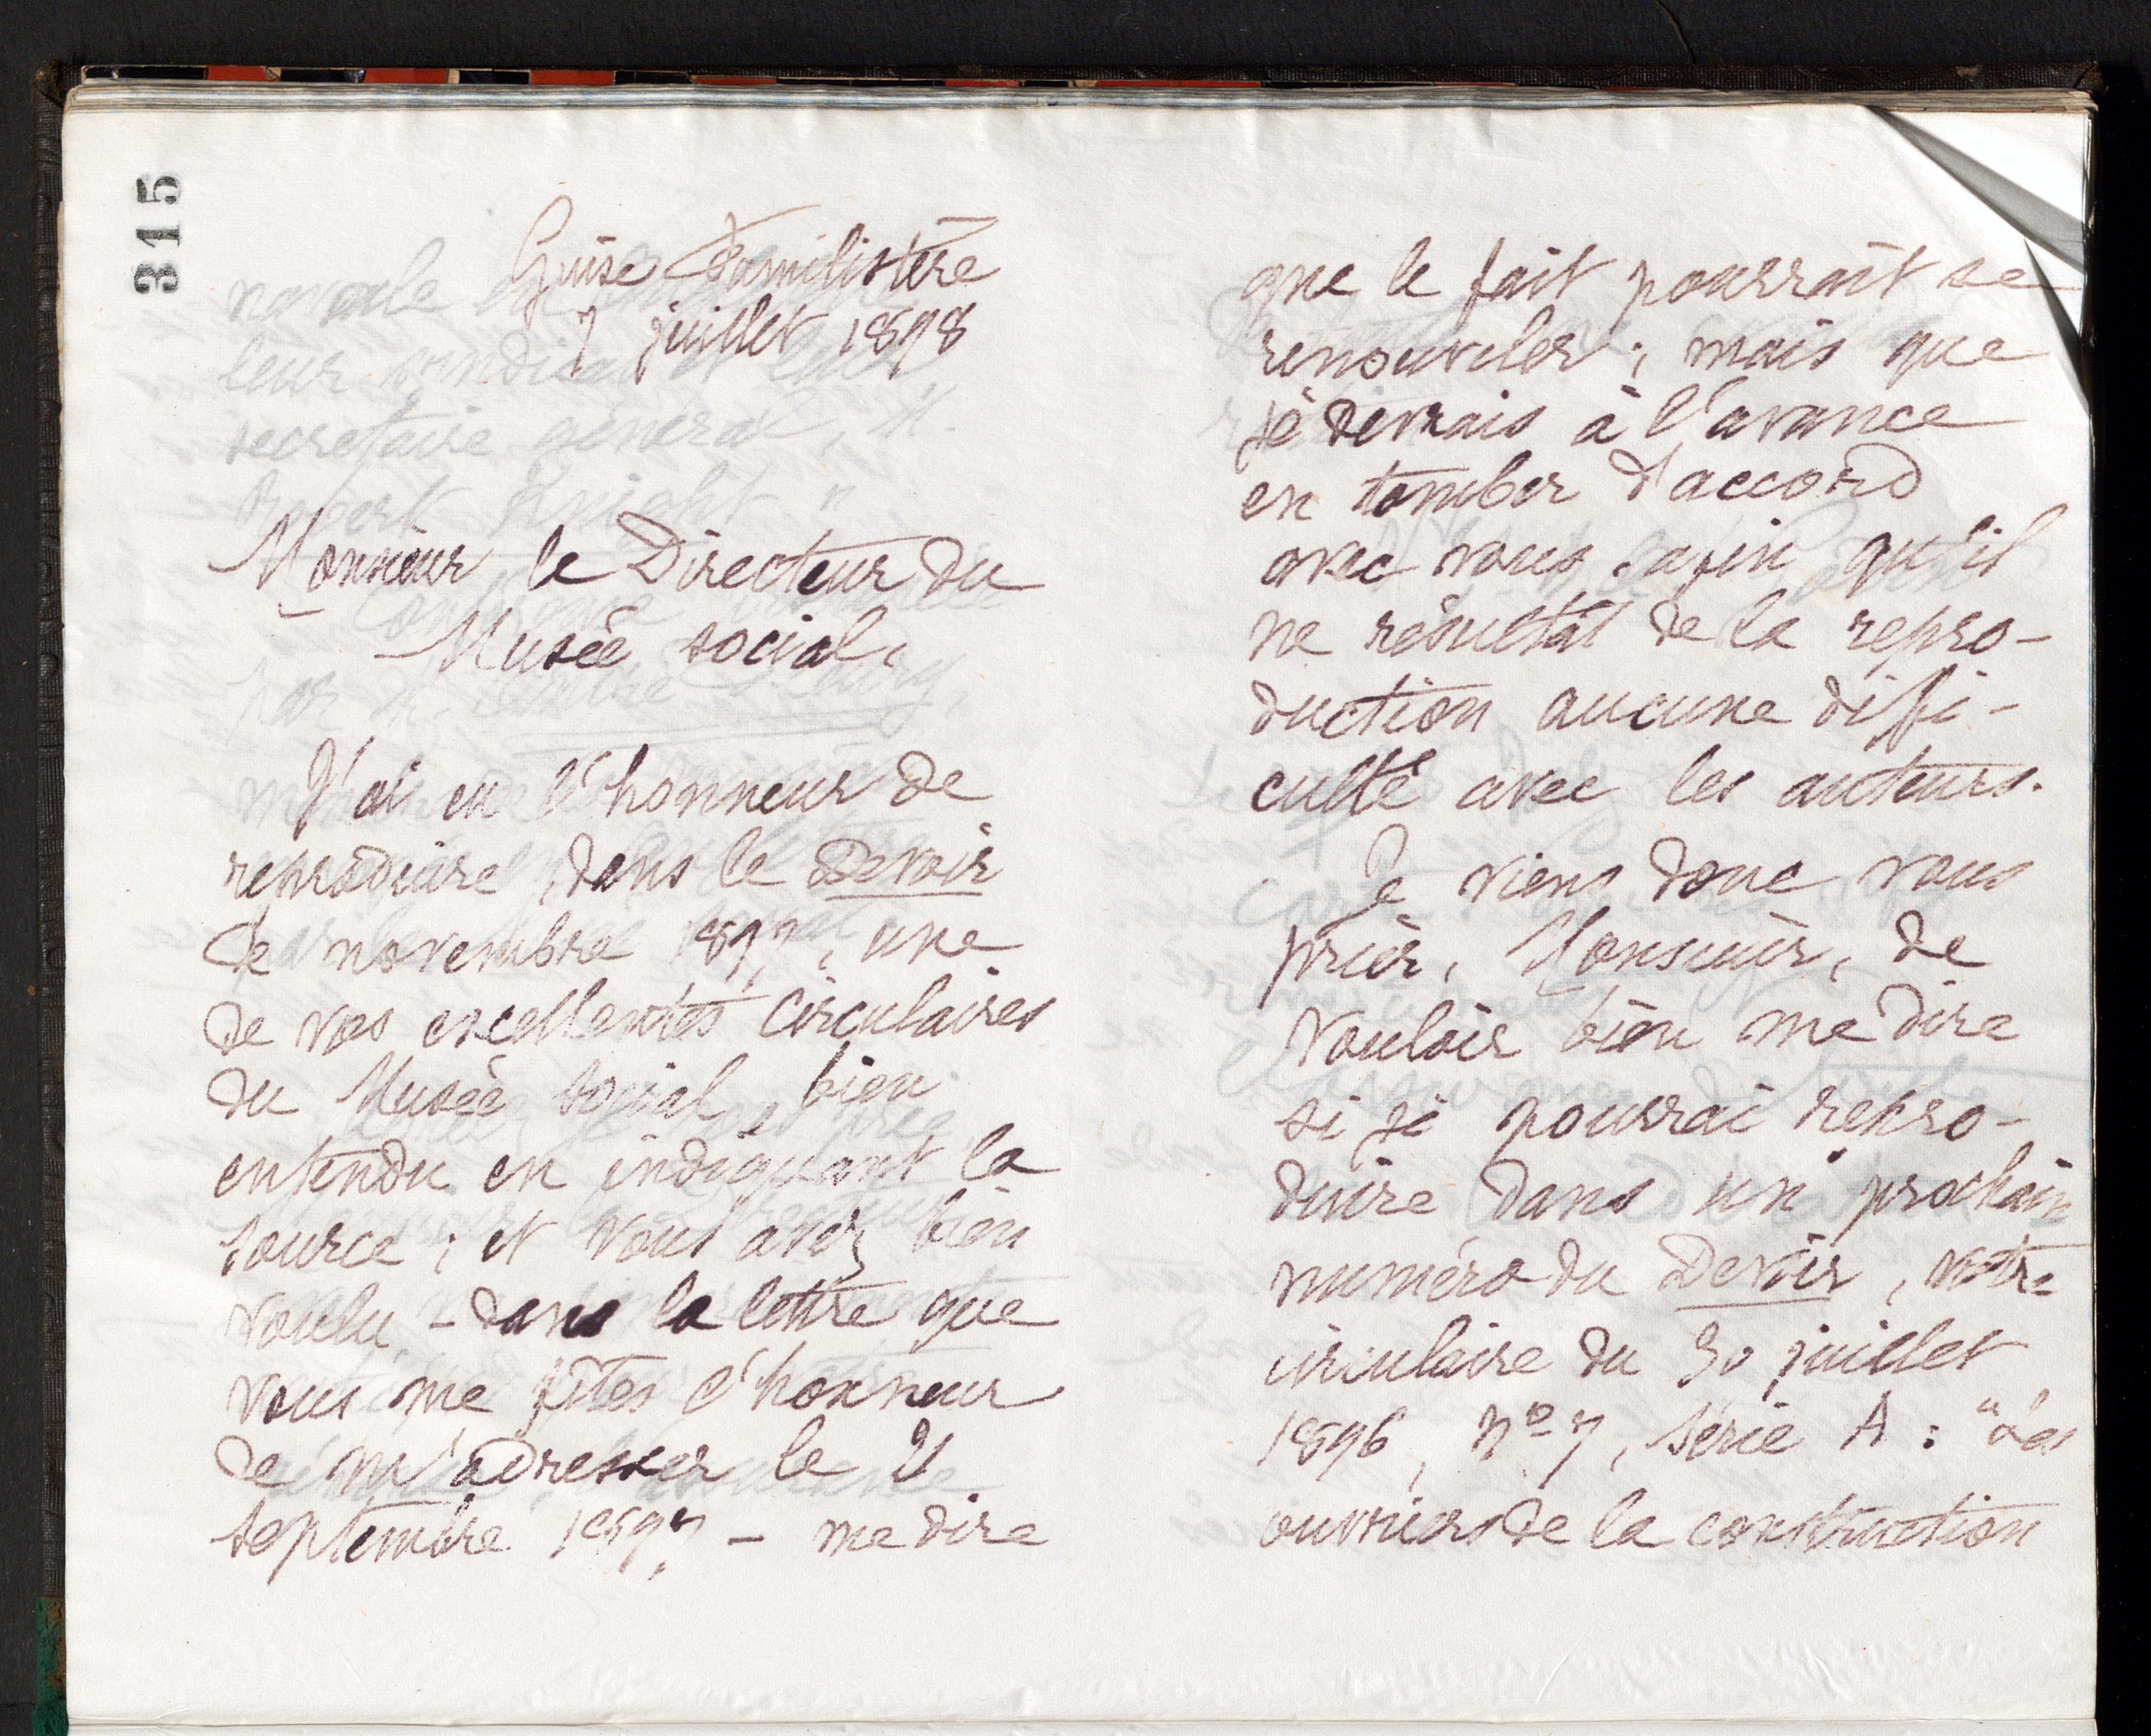 315
Guise Familistère
7 juillet 1898
Monsieur le Directeur du
Musée social,
J'ai eu l'honneur de
reproduire, dans le Devoir
de novembre 1897, une
de vos excellentes circulaires
du Musée social, bien
entendu en indiquant la
source ; et vous avez bien
voulu - dans la lettre que
vous me fîtes l'honneur
de m'adresser le
septembre 1897 - me dire
que le fait pourrait se
renouveler ; mais que
je devrais à l'avance
en tomber d'accord
avec vous, afin qu'il
ne résultât de la repro-
duction aucune diffi-
culté avec les auteurs.
Je viens donc vous
prier, Monsieur, de
vouloir bien me dire
si je pourrai repro-
duire dans un prochain
numéro du Devoir, votre
circulaire du 30 juillet
1896, Nº 7, Série A : "Les
ouvriers de la construction